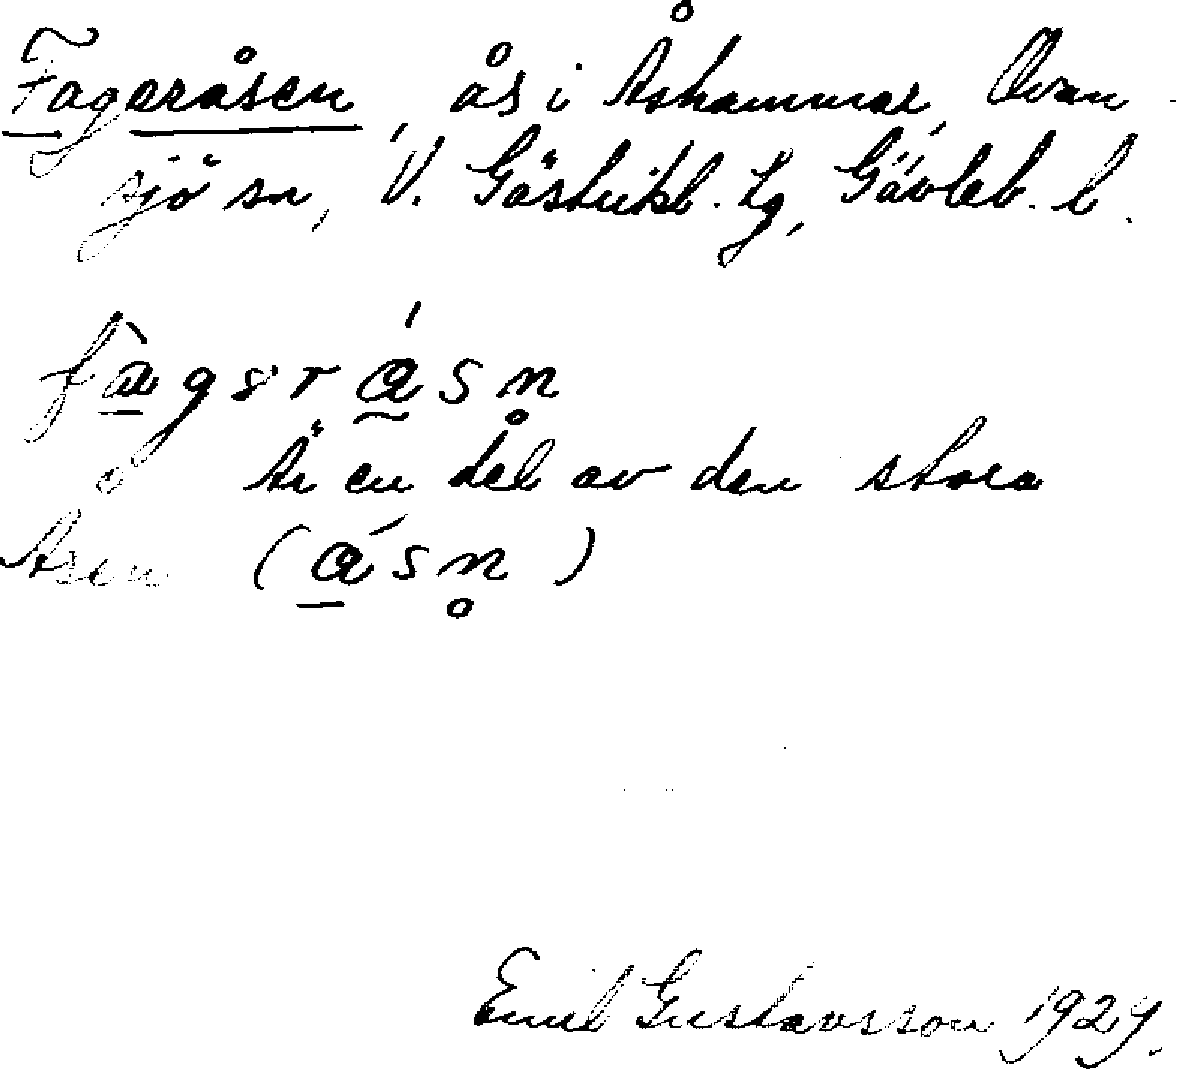 Fageråsen, ås i Åshammar, Ovan-
sjö sn, V. Gästrikl. tg, Gävleb. l.
fàgərásn̥
Är en del av den stora
Åsen (ásn̥)
Emil Gustavsson 1929.